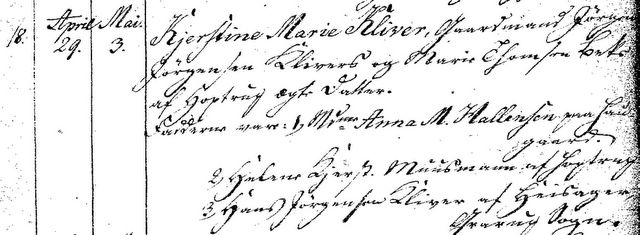 18. April 29. Mai. 3. Kjerstine Marie Kliver, Gaardmand Jørgen
Jørgensen Klivers og Marie Thomsen
af Hoptrug ægte Datter.
Faddere vare: 1) Anna M. Hallensen paa
gaard.
2) Helene Kjerst. Muusmann af Hoptrug
3 Hans Jørgensen Kliver af Heisager
Grarug Sogn.